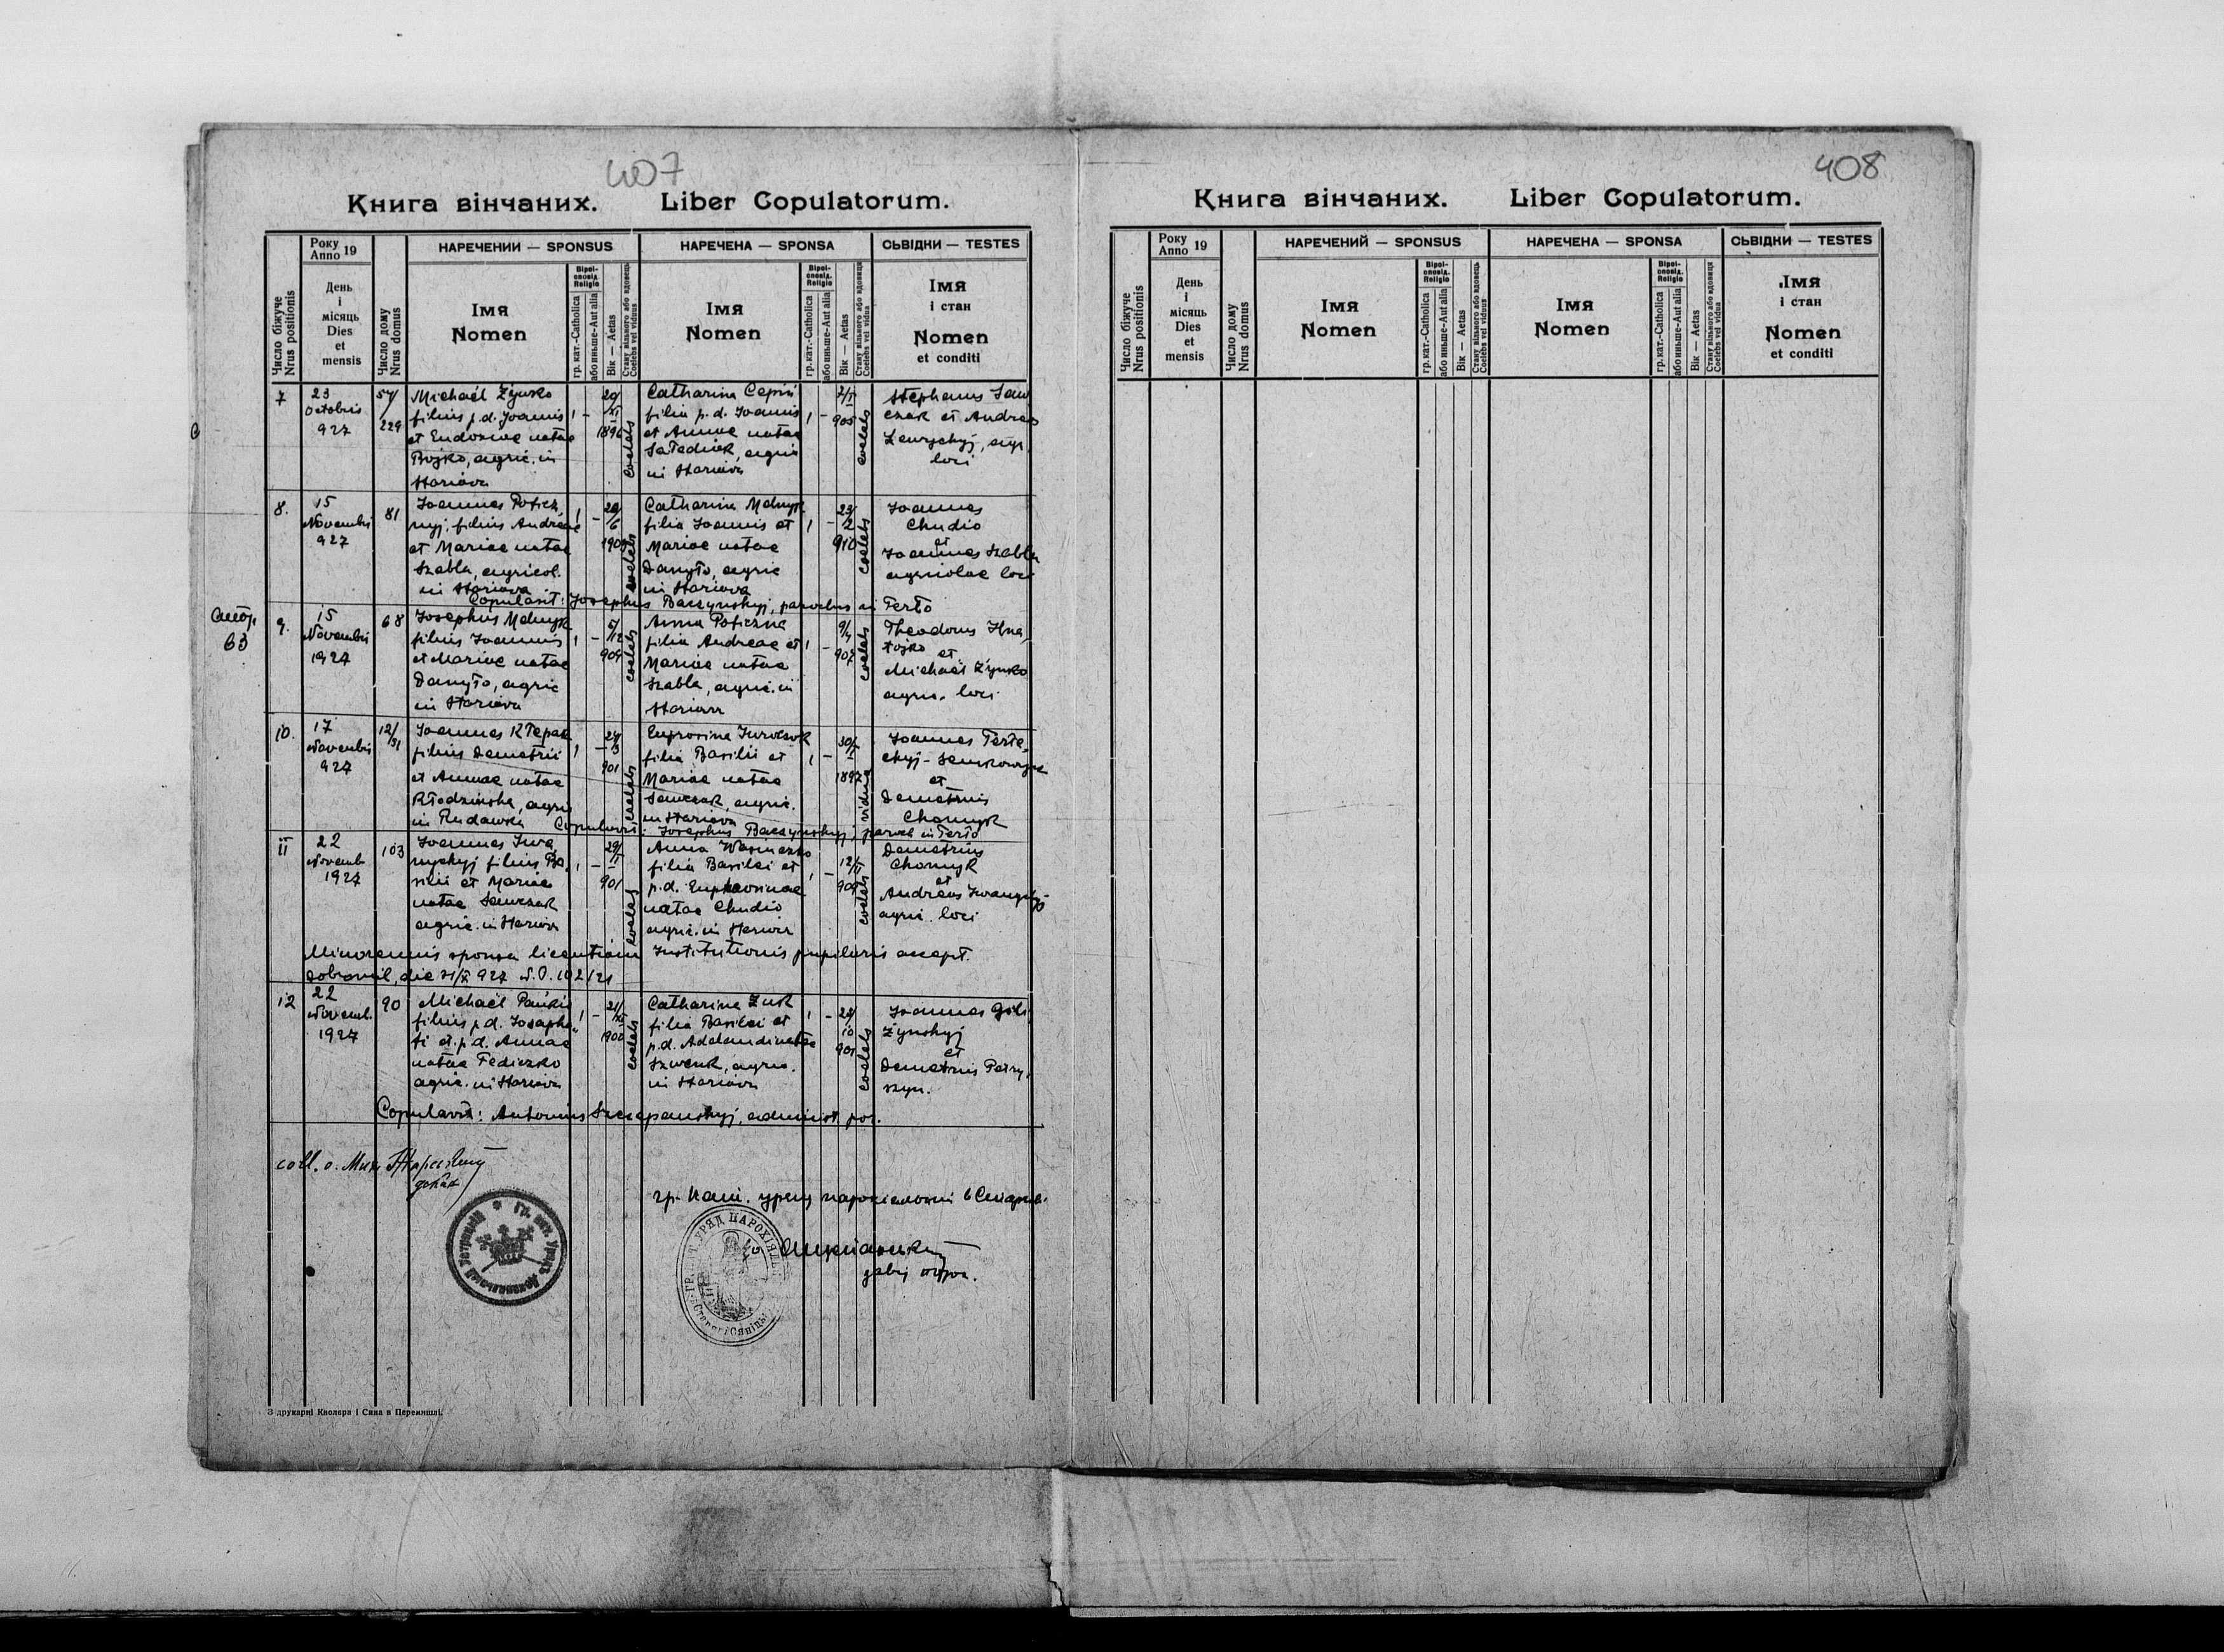 407
Книга вінчаних. Liber Copulatorum.
Число біжуче
Nrus positionis
Року
Anno 19
День
і
місяць
Dies
et
mensis
Число дому
Nrus domus
НАРЕЧЕНИЙ — SPONSUS
Імя
Nomen
Віроі-
сповід.
Religio
гр. кат.-Catholica
або иньше-Aut alia
Вік — Aetas
Стану вільного або вдовець
Coelebs vel viduus
НАРЕЧЕНА — SPONSA
Імя
Nomen
Віроі-
сповід.
Religio
гр. кат.-Catholica
або иньше-Aut alia
Вік — Aetas
Стану вільного або вдовиця
Coelebs vel vidua
СЬВІДКИ — TESTES
Імя
і стан
Nomen
et conditi
7
23
Octobris
927
57/
229
Michaël Żynsko
filius p.d. Joannis
et Eudoxiae natae
Bojko, agric. in
Stariava
1
-
29/
XI
1896
coelebs
Catharina
filia p.d. Joannis
et Annae natae
agric.
in Stariava
1
-
7/I
905
coelebs
Stephanus Saw
czak et Andreas
agr.
loci
8.
15
Novembri
927
81
Joannes Poticz
nyj, filius Andreae
et Mariae natae
Szabla, agricol.
in Stariava
1
-
20/
6
coelebs
Catharina Melnyk
filia Joannis et
Mariae natae
Danyło, agric
in Stariava
1
-
23/
2
910
coelebs
Joannes
Chudio
et
Joannes Szabla
agricolae loci
Copulavit: Josephus Baczynskyj, parochus in Terło
63
9.
15
Novembri
1927
68
Josephus Melnyk
filius Joannis
et Mariae natae
Danyło, agric
in Stariava
1
-
5/
12
904
coelebs
Anna Poticzna
filia Andreae et
Mariae natae
Szabla, agric. in
Stariava
1
-
9/
4
907
coelebs
Theodorus Hna
tojko
et
Michaël Żynsko
agric. loci
10.
17
Novembri
927
12/
31
Joannes Kłepak
filius Demetrii
et Annae natae
Kłodzinska, agric
in Rudawka
1
-
24/
3
901
coelebs
Euprosina Jurczak
filia Basilii et
Mariae natae
Sawczak, agric.
in Stariava
1
-
30/
I
1897
vidua
Joannes Terłe
ckyj-
et
Demetrius
Chomyk
Copulavit: Josephus Baczynskyj, paroch in Terło
11
22
Novemb
1927
103
Joannes Iwa
nyckyj filius Ba
silii et Mariae
natae Sawczak
agric. in Stariava
1
-
29/
II
901
coelebs
Anna
filia Basilii et
p.d. Euphrosinae
natae Chudio
agric. in Stariava
1
-
12/
I
909
coelebs
Demetrius
Chomyk
et
Andreas Iwanyckyj
agric. loci
Minorennis sponsa licentiam Institutionis pupilaris accept.
Dobromil, die 31/X 927
12
22
Novemb.
1927
90
Michaël Pańkiw
filius p.d. Josapha
ti et p.d. Annae
natae Fediczko
agric. in Stariava
1
-
21/
XI
1900
coelebs
Catharina Żuk
filia Basilii et
p.d.
agric.
in Stariava
1
-
28/
10
901
coelebs
Joannes Goli
żynskyj
et
Demetrius Petry
szyn.
Copulavit: Antonius Szczepanskyj, administ. par.
coll. о.
декан
гр.-кат. уряд парохіяльний в
З друкарні Кнолєра і Сина в Перемишлі.
408
Книга вінчаних. Liber Copulatorum.
Число біжуче
Nrus positionis
Року
Anno 19
День
і
місяць
Dies
et
mensis
Число дому
Nrus domus
НАРЕЧЕНИЙ — SPONSUS
Імя
Nomen
Віроі-
сповід.
Religio
гр. кат.-Catholica
або иньше-Aut alia
Вік — Aetas
Стану вільного або вдовець
Coelebs vel viduus
НАРЕЧЕНА — SPONSA
Імя
Nomen
Віроі-
сповід.
Religio
гр. кат.-Catholica
або иньше-Aut alia
Вік — Aetas
Стану вільного або вдовиця
Coelebs vel vidua
СЬВІДКИ — TESTES
Імя
і стан
Nomen
et conditi